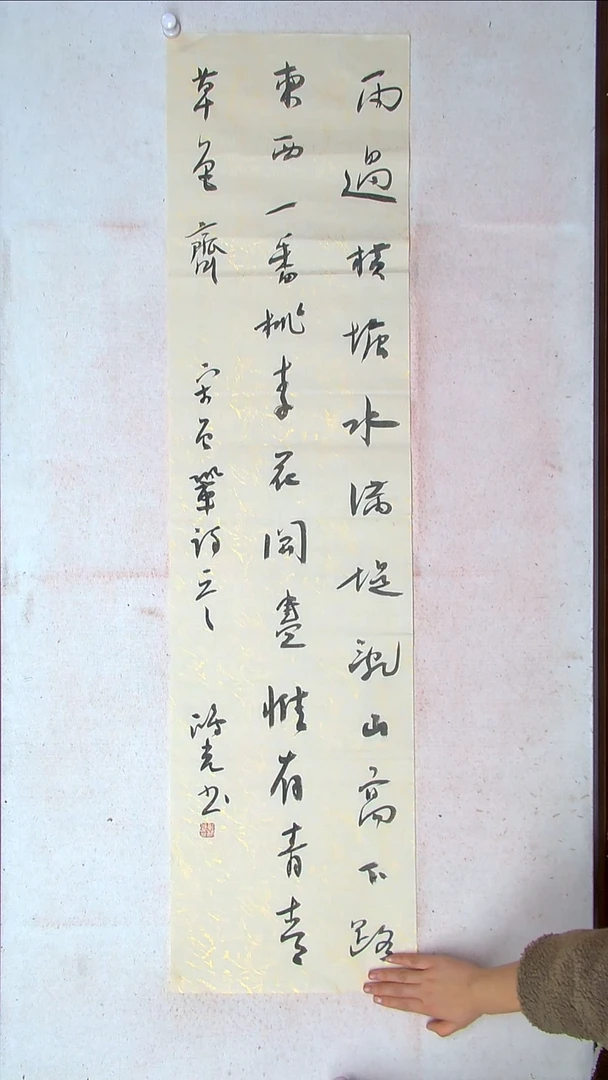 雨過横塘水滿堤亂山高下路
東西一番桃李花開盡惟有青青
草色齊 宋曾鞏詩一首 鴻光書